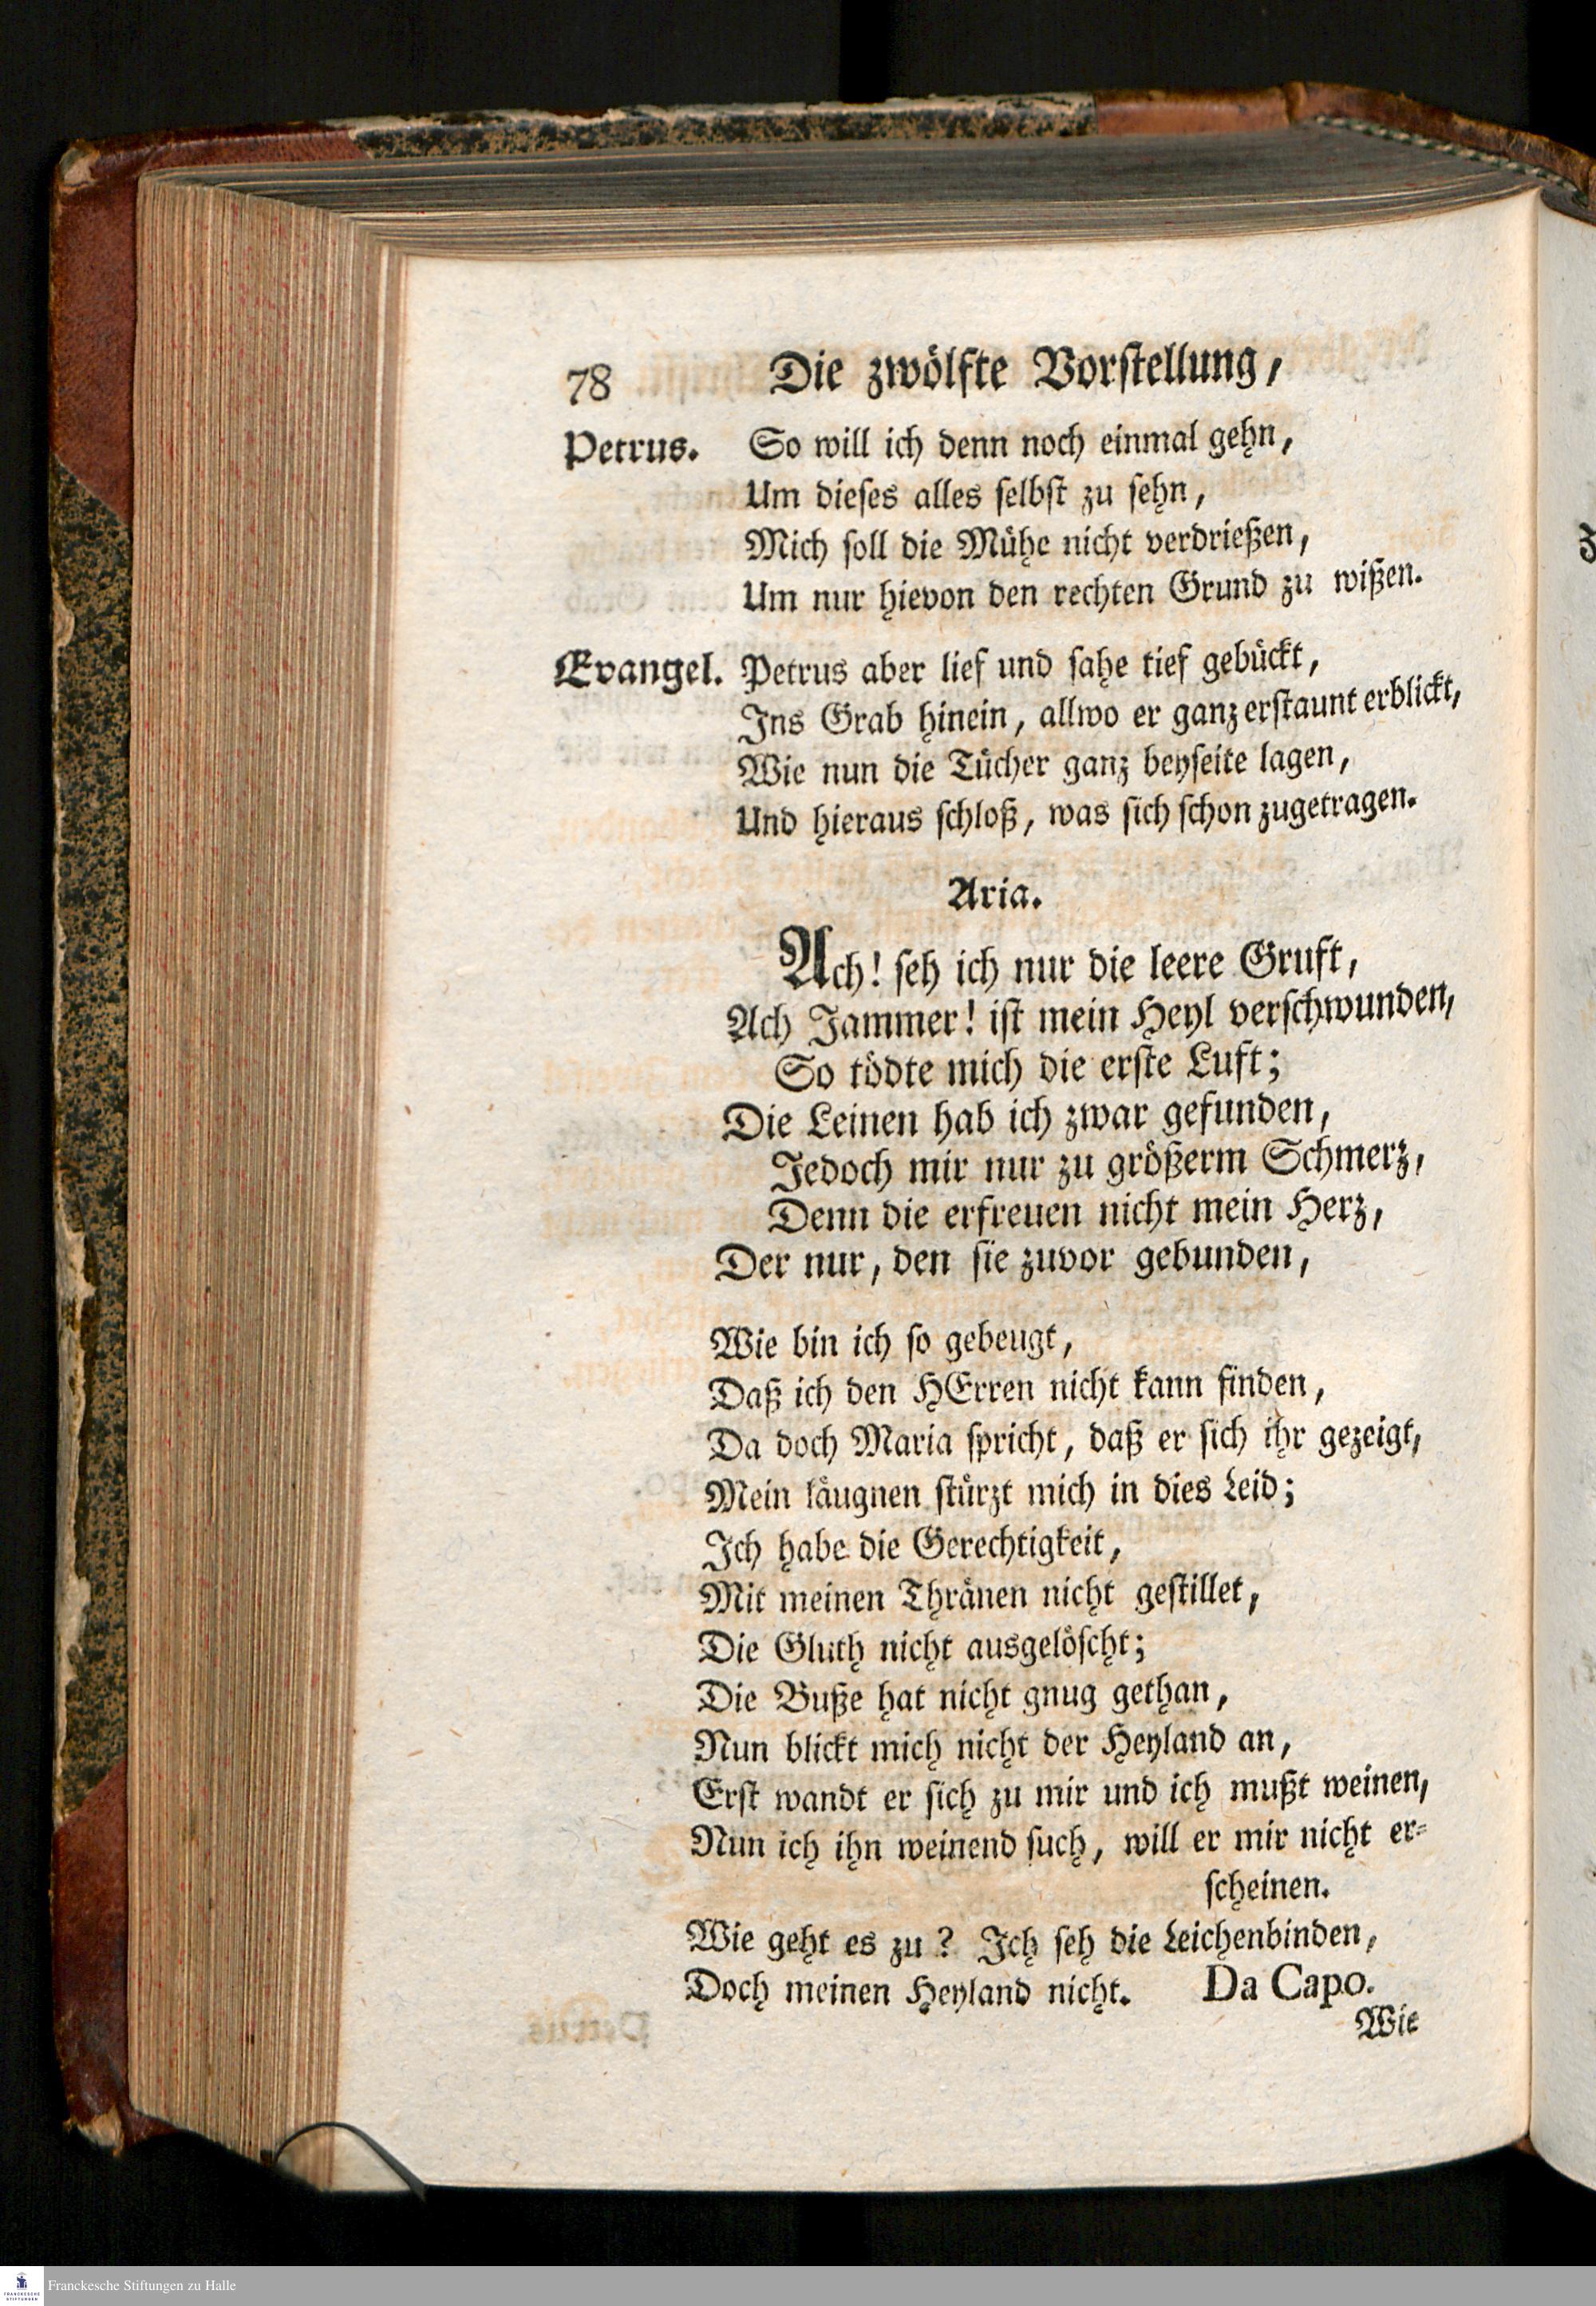 78 Die zwölfte Vorstellung,
Petrus. So will ich denn noch einmal gehn,
Um dieses alles selbst zu sehn,
Mich soll die Mühe nicht verdrießen,
Um nur hievon den rechten Grund zu wißen.
Evangel. Petrus aber lief und sahe tief gebückt,
Ins Grab hinein, allwo er ganz erstaunt erblickt,
Wie nun die Tücher ganz beyseite lagen,
Und hieraus schloß, was sich schon zugetragen.
Aria.
Ach! seh ich nur die leere Gruft,
Ach Jammer! ist mein Heyl verschwunden,
So tödte mich die erste Luft;
Die Leinen hab ich zwar gefunden,
Jedoch mir nur zu größerm Schmerz,
Denn die erfreuen nicht mein Herz,
Der nur, den sie zuvor gebunden,
Wie bin ich so gebeugt,
Daß ich den HErren nicht kann finden,
Da doch Maria spricht, daß er sich ihr gezeigt,
Mein läugnen stürzt mich in dies Leid;
Ich habe die Gerechtigkeit,
Mit meinen Thränen nicht gestillet,
Die Gluth nicht ausgelöscht;
Die Buße hat nicht gnug gethan,
Nun blickt mich nicht der Heyland an,
Erst wandt er sich zu mir und ich mußt weinen,
Nun ich ihn weinend such, will er mir nicht er-
scheinen.
Wie geht es zu? Ich seh die Leichenbinden,
Doch meinen Heyland nicht. Da Capo.
Wie
Franckesche Stiftungen zu Halle